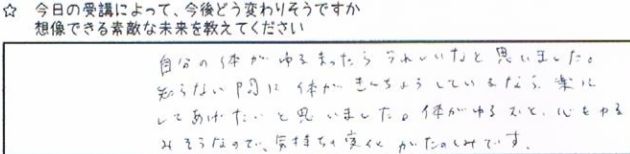 ☆ 今日の受講によって、今後どう変わりそうですか
想像できる素敵な未来を教えてください
自分の体がゆるまったらうれしいなと思いました。
知らない間に体がきんちょうしているなら、楽に
してあげたいと思いました。体がゆるむと、心もゆる
みそうなので、気持ちの変化がたのしみです。